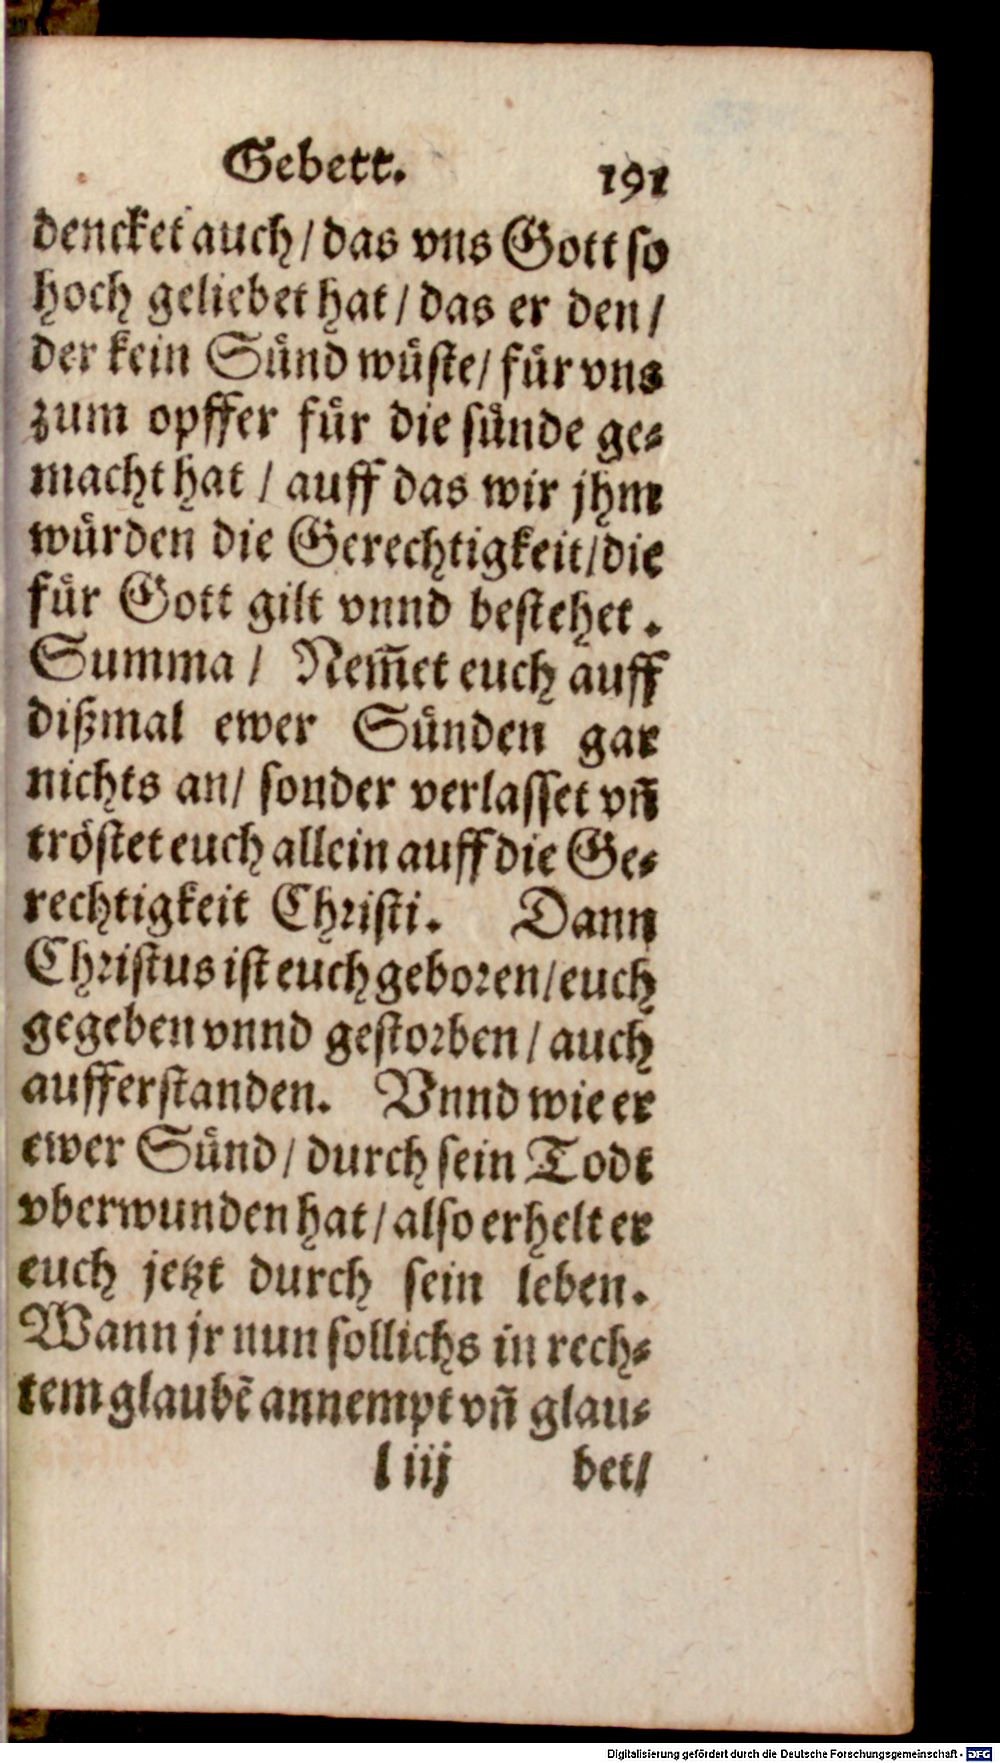 Gebett. 191
dencket auch / das vns Gott so
hoch geliebet hat / das er den /
der kein Sünd wüste / für vns
zum opffer für die sünde ge-
macht hat / auff das wir jhm
würden die Gerechtigkeit / die
für Gott gilt vnnd bestehet .
Summa / Nem̃et euch auff
dißmal ewer Sünden gar
nichts an / sonder verlasset vñ
tröstet euch allein auff die Ge-
rechtigkeit Christi. Dann
Christus ist euch geboren / euch
gegeben vnnd gestorben / auch
aufferstanden. Vnnd wie er
ewer Sünd / durch sein Todt
vberwunden hat / also erhelt er
euch jetzt durch sein leben.
Wann jr nun sollichs in rech-
tem glaubẽ annempt vñ glau-
l iij bet /
Digitalisierung gefördert durch die Deutsche Forschungsgemeinschaft - DFG